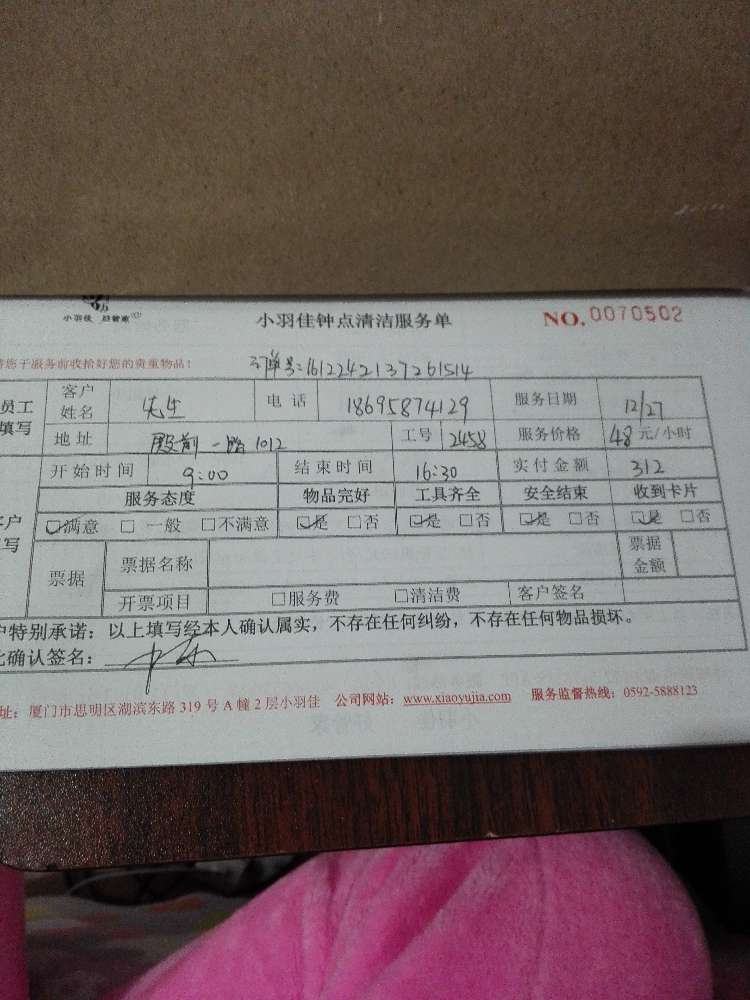 小羽佳 好管家
小羽佳钟点清洁服务单 NO. 0070502
您于服务前收拾好您的贵重物品! 订单号:1612242137261514
员工填写 客户姓名 先生 电话 18695874129 服务日期 12/27
地址 殿前一路1012 工号 2458 服务价格 48元/小时
开始时间 9:00 结束时间 16:30 实付金额 312
服务态度 物品完好 工具齐全 安全结束 收到卡片
户写 ☑满意 □一般 □不满意 ☑是 □否 ☑是 □否 ☑是 □否 ☑是 □否
票据 票据名称 票据金额
开票项目 □服务费 □清洁费 客户签名
户特别承诺:以上填写经本人确认属实,不存在任何纠纷,不存在任何物品损坏。
此确认签名:
址:厦门市思明区湖滨东路319号A幢2层小羽佳 公司网站:www.xiaoyujia.com 服务监督热线:0592-5888123